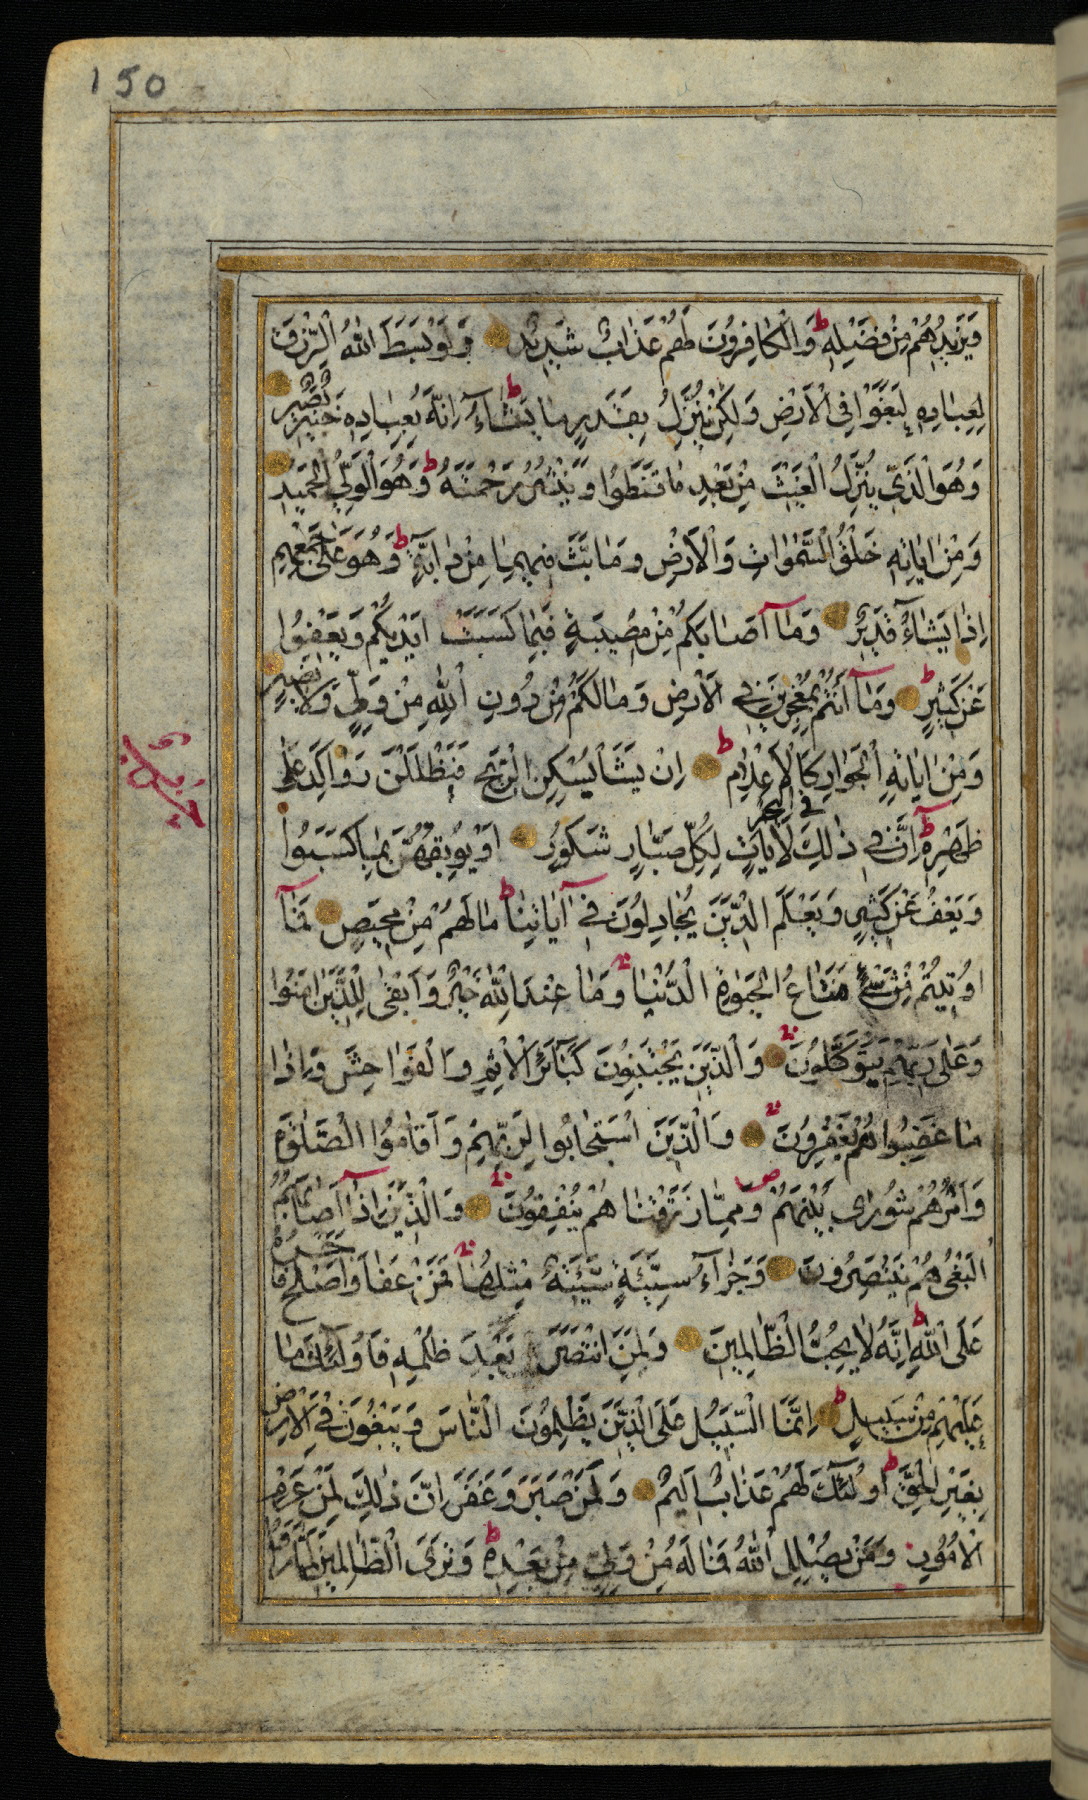 150
وَيَزِيدُهُمْ مِنْ فَضْلِهِ ط وَالْكَافِرُونَ لَهُمْ عَذَابٌ شَدِيدٌ وَلَوْ بَسَطَ اللّٰهُ الرِّزْقَ
لِعِبَادِهِ لَبَغَوْا فِي الْأَرْضِ وَلٰكِنْ يُنَزِّلُ بِقَدَرٍ مَا يَشَآءُ ط اِنَّهُ بِعِبَادِهِ خَبِيرٌ بَصِيرٌ
وَهُوَ الَّذِي يُنَزِّلُ الْغَيْثَ مِنْ بَعْدِ مَا قَنَطُوا وَيَنْشُرُ رَحْمَتَهُ ط وَهُوَ الْوَلِيُّ الْحَمِيدُ
وَمِنْ اٰيَاتِهِ خَلْقُ السَّمٰوَاتِ وَالْأَرْضِ وَمَا بَثَّ فِيهِمَا مِنْ دَابَّةٍ ط وَهُوَ عَلٰى جَمْعِهِمْ
اِذَا يَشَآءُ قَدِيرٌ وَمَآ اَصَابَكُمْ مِنْ مُصِيبَةٍ فَبِمَا كَسَبَتْ اَيْدِيكُمْ وَيَعْفُوا
عَنْ كَثِيرٍ ط وَمَآ اَنْتُمْ بِمُعْجِزِينَ فِي الْأَرْضِ وَمَا لَكُمْ مِنْ دُونِ اللّٰهِ مِنْ وَلِيٍّ وَلَا نَصِيرٍ
وَمِنْ اٰيَاتِهِ الْجَوَارِ فِي الْبَحْرِ كَالْأَعْلَامِ ط اِنْ يَشَأْ يُسْكِنِ الرِّيحَ فَيَظْلَلْنَ رَوَاكِدَ عَلٰى
ظَهْرِهِ ط اِنَّ فِي ذٰلِكَ لَاٰيَاتٍ لِكُلِّ صَبَّارٍ شَكُورٍ اَوْ يُوبِقْهُنَّ بِمَا كَسَبُوا
وَيَعْفُ عَنْ كَثِيرٍ وَيَعْلَمَ الَّذِينَ يُجَادِلُونَ فِي اٰيَاتِنَا ط مَا لَهُمْ مِنْ مَحِيصٍ فَمَآ
اُوتِيتُمْ مِنْ شَيْءٍ فَمَتَاعُ الْحَيٰوةِ الدُّنْيَا وَمَا عِنْدَ اللّٰهِ خَيْرٌ وَاَبْقٰى لِلَّذِينَ اٰمَنُوا
وَعَلٰى رَبِّهِمْ يَتَوَكَّلُونَ وَالَّذِينَ يَجْتَنِبُونَ كَبَآئِرَ الْاِثْمِ وَالْفَوَاحِشَ وَاِذَا
مَا غَضِبُوا هُمْ يَغْفِرُونَ وَالَّذِينَ اسْتَجَابُوا لِرَبِّهِمْ وَاَقَامُوا الصَّلٰوةَ
وَاَمْرُهُمْ شُورٰى بَيْنَهُمْ ص وَمِمَّا رَزَقْنَا هُمْ يُنْفِقُونَ وَالَّذِينَ اِذَآ اَصَابَهُمُ
الْبَغْيُ هُمْ يَنْتَصِرُونَ وَجَزَآءُ سَيِّئَةٍ سَيِّئَةٌ مِثْلُهَا فَمَنْ عَفَا وَاَصْلَحَ فَاَجْرُهُ
عَلَى اللّٰهِ ط اِنَّهُ لَا يُحِبُّ الظَّالِمِينَ وَلَمَنِ انْتَصَرَ بَعْدَ ظُلْمِهِ فَاُولٰٓئِكَ مَا
عَلَيْهِمْ مِنْ سَبِيلٍ ط اِنَّمَا السَّبِيلُ عَلَى الَّذِينَ يَظْلِمُونَ النَّاسَ وَيَبْغُونَ فِي الْأَرْضِ
بِغَيْرِ الْحَقِّ ط اُولٰٓئِكَ لَهُمْ عَذَابٌ اَلِيمٌ وَلَمَنْ صَبَرَ وَغَفَرَ اِنَّ ذٰلِكَ لَمِنْ عَزْمِ
الْاُمُورِ وَمَنْ يُضْلِلِ اللّٰهُ فَمَا لَهُ مِنْ وَلِيٍّ مِنْ بَعْدِهِ ط وَتَرَى الظَّالِمِينَ لَمَّا رَاَوُا